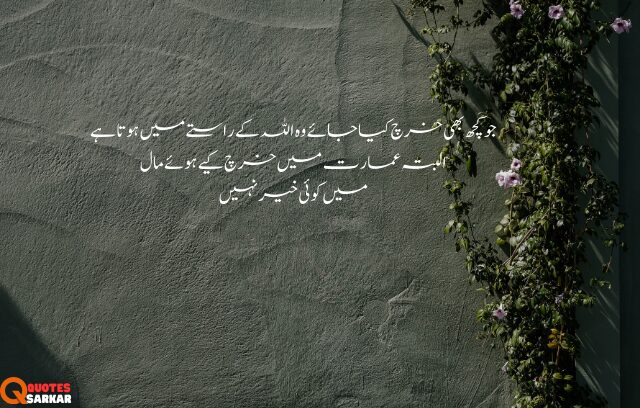 جو کچھ بھی خرچ کیا جائے وہ اللہ کے راستے میں ہوتا ہے
البتہ عمارت میں خرچ کیے ہوئے مال
میں کوئی خیر نہیں
QUOTES
SARKAR